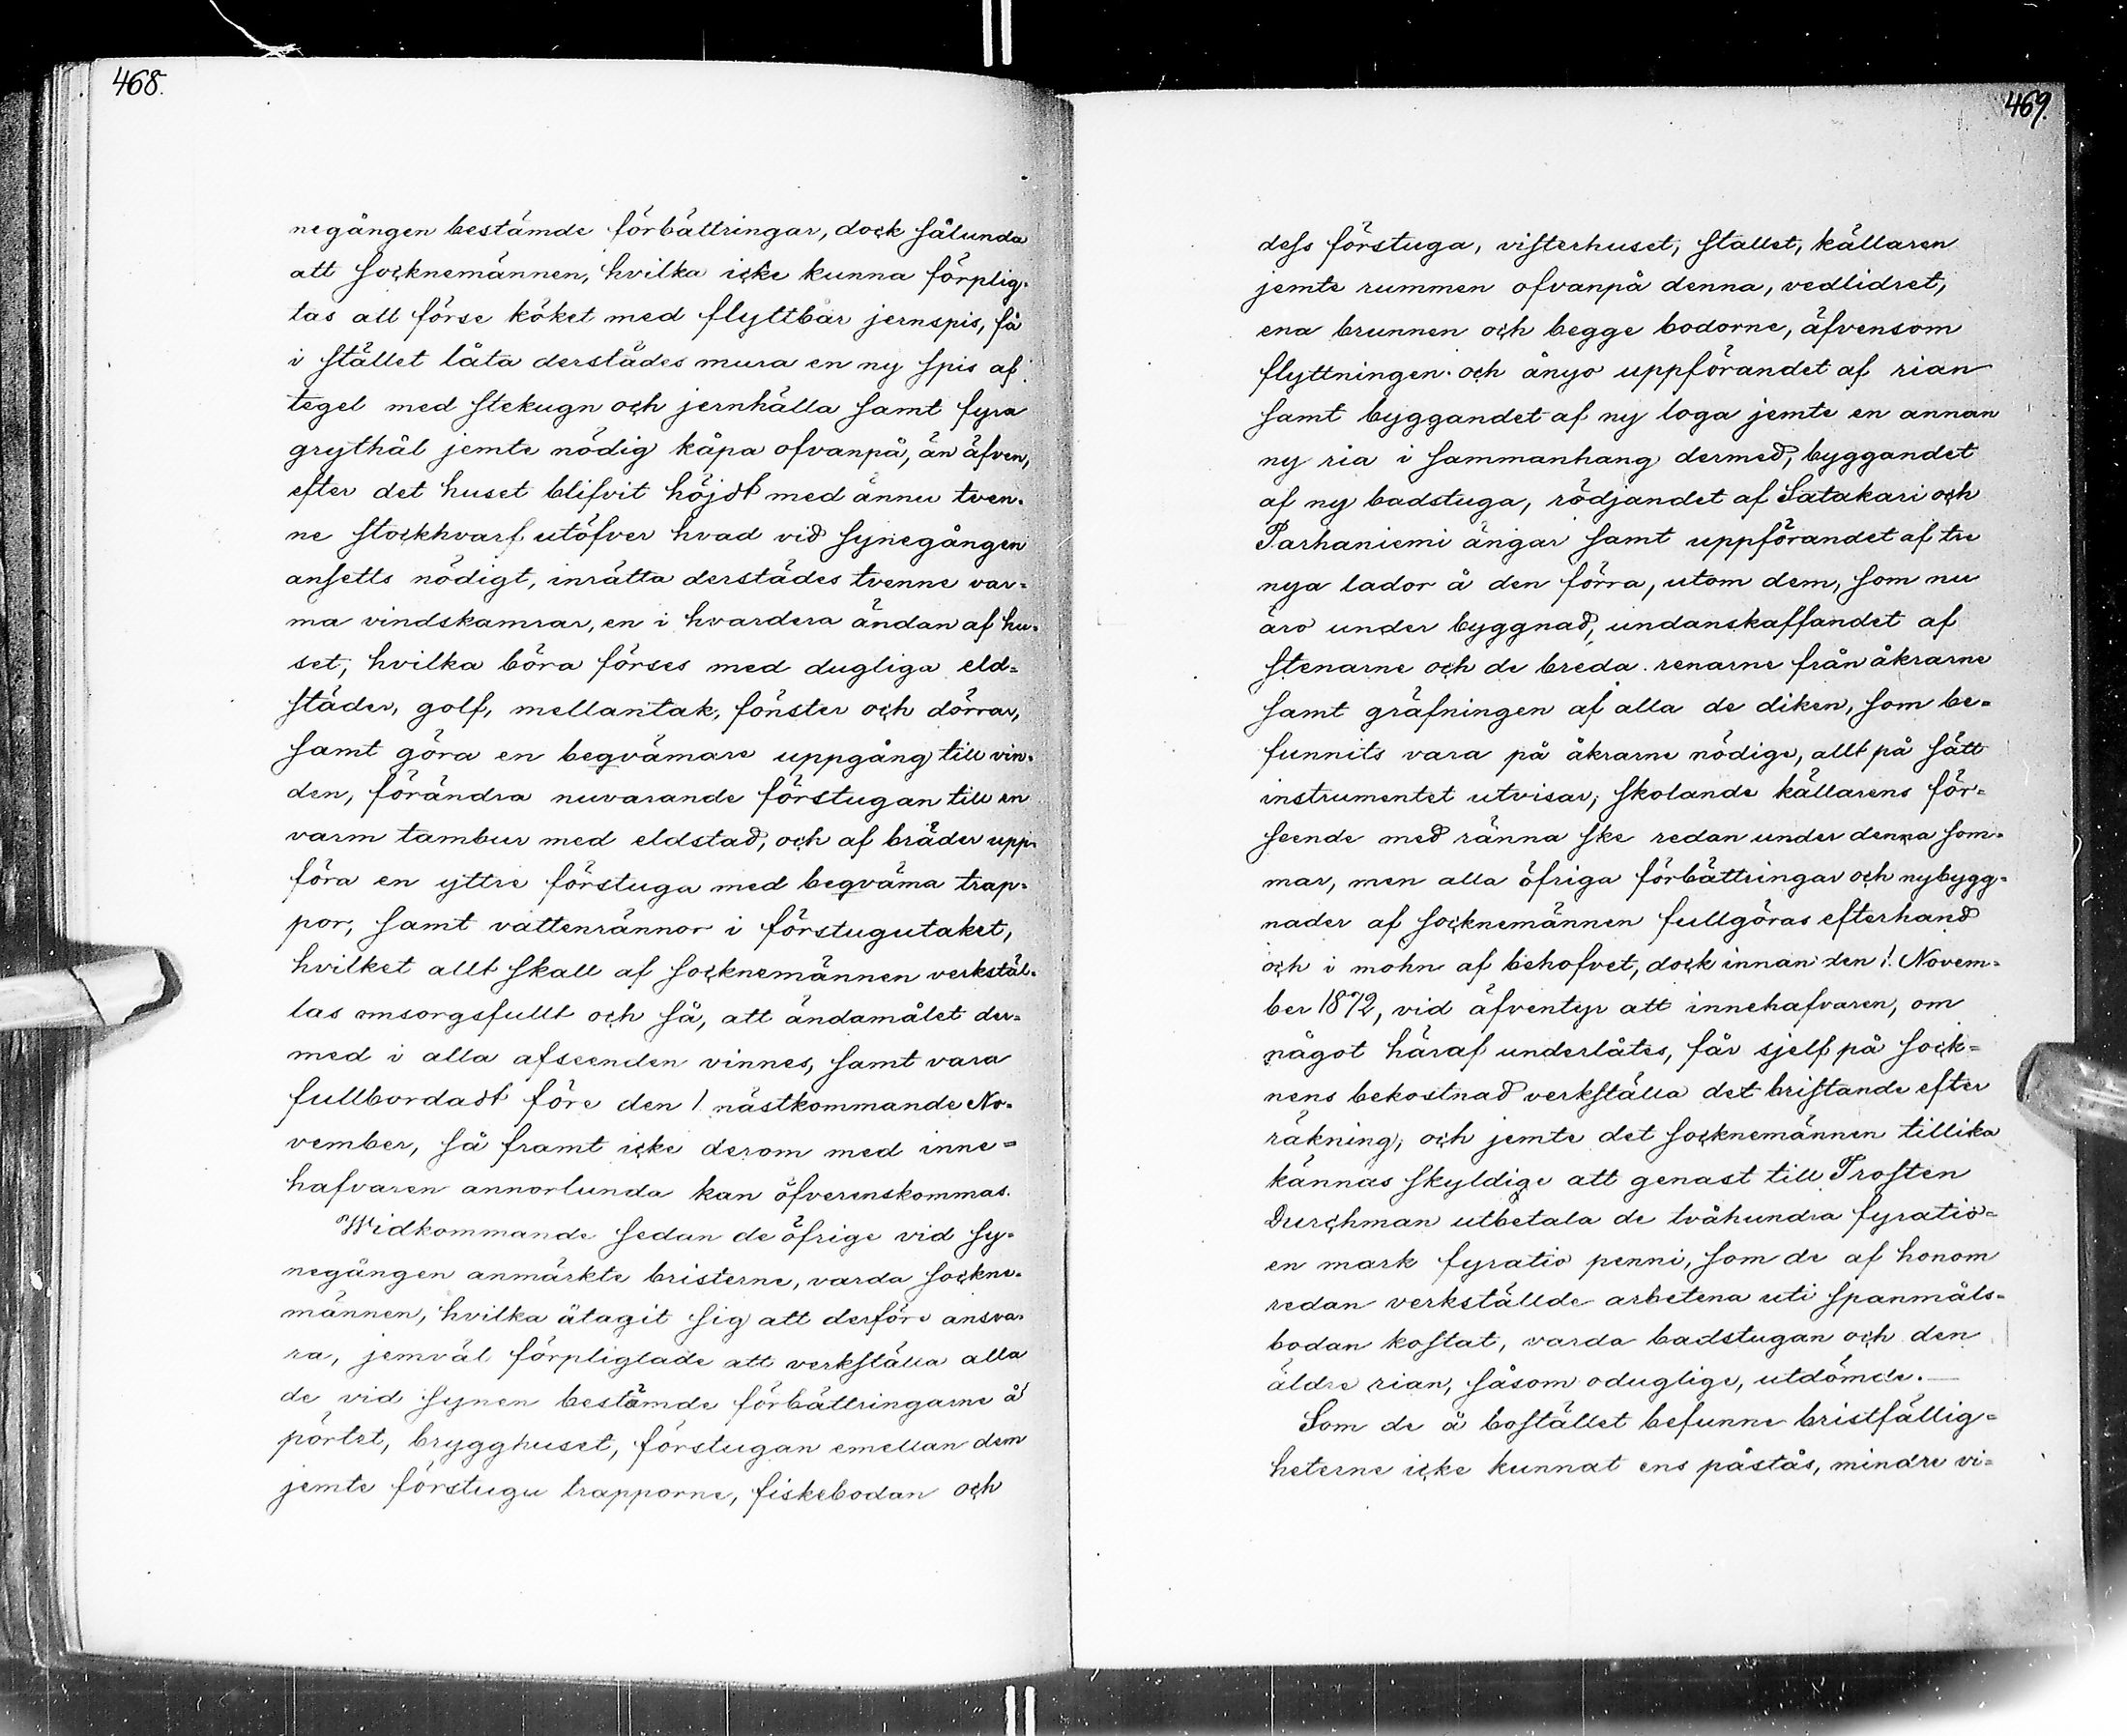 468.
negången bestämde förbättringar, dock sålunda
att socknemännen, hvilka icke kunna förplig-
tas att förse köket med flyttbar jernspis, få
i stället låta derstädes mura en ny spis af
tegel med stekugn och jernhälla samt fyra
grythål jemte nödig kåpa ofvanpå, än äfven,
efter det huset blifvit höjdt med ännu tven-
ne stockhvarf utöfver hvad vid synegången
ansetts nödigt, inrätta derstädes tvenne var-
ma vindskamrar, en i hvardera ändan af hu-
set, hvilka böra förses med dugliga eld-
städer, golf, mellantak, fönster och dörrar,
samt göra en beqvämare uppgång till vin-
den, förändra nuvarande förstugan till en
varm tambur med eldstad, och af bräder upp-
föra en yttre förstuga med beqväma trap-
por, samt vattenrännor i förstugutaket,
hvilket allt skall af socknemännen verkstäl-
las omsorgsfullt och så, att ändamålet der-
med i alla afseenden vinnes, samt vara
fullbordadt före den 1 nästkommande No-
vember, så framt icke derom med inne-
hafvaren annorlunda kan öfverenskommas.
Widkommande sedan de öfrige vid sy-
negången anmärkte bristerne, varda sockne-
männen, hvilka åtagit sig att derföre ansva-
ra, jemväl förpligtade att verkställa alla
de vid synen bestämde förbättringarne å
pörtet, brygghuset, förstugan emellan dem
jemte förstugu trapporne, fiskebodan och
469.
dess förstuga, visterhuset, stallet, källaren
jemte rummen ofvanpå denna, vedlidret,
ena brunnen och begge bodorne, äfvensom
flyttningen och ånyo uppförandet af rian
samt byggandet af ny loga jemte en annan
ny ria i sammanhang dermed, byggandet
af ny badstuga, rödjandet af Satakari och
Parhaniemi ängar samt uppförandet af tre
nya lador å den förra, utom dem, som nu
äro under byggnad, undanskaffandet af
stenarne och de breda renarne från åkrarne
samt gräfningen af alla de diken, som be-
funnits vara på åkrarne nödige, allt på sätt
instrumentet utvisar, skolande källarens för-
seende med ränna ske redan under denna som-
mar, men alla öfriga förbättringar och nybygg-
nader af socknemännen fullgöras efterhand
och i mohn af behofvet, dock innan den 1. Novem-
ber 1872, vid äfventyr att innehafvaren, om
något häraf underlåtes, får sjelf på sock-
nens bekostnad verkställa det bristande efter
räkning; och jemte det socknemännen tillika
kännas skyldige att genast till Prosten
Durchman utbetala de tvåhundra fyratio-
en mark fyratio penni, som de af honom
redan verkställde arbetena uti spanmåls-
bodan kostat, varda badstugan och den
äldre rian, såsom oduglige, utdömde.—
Som de å bostället befunne bristfällig-
heterne icke kunnat ens påstås, mindre vi-